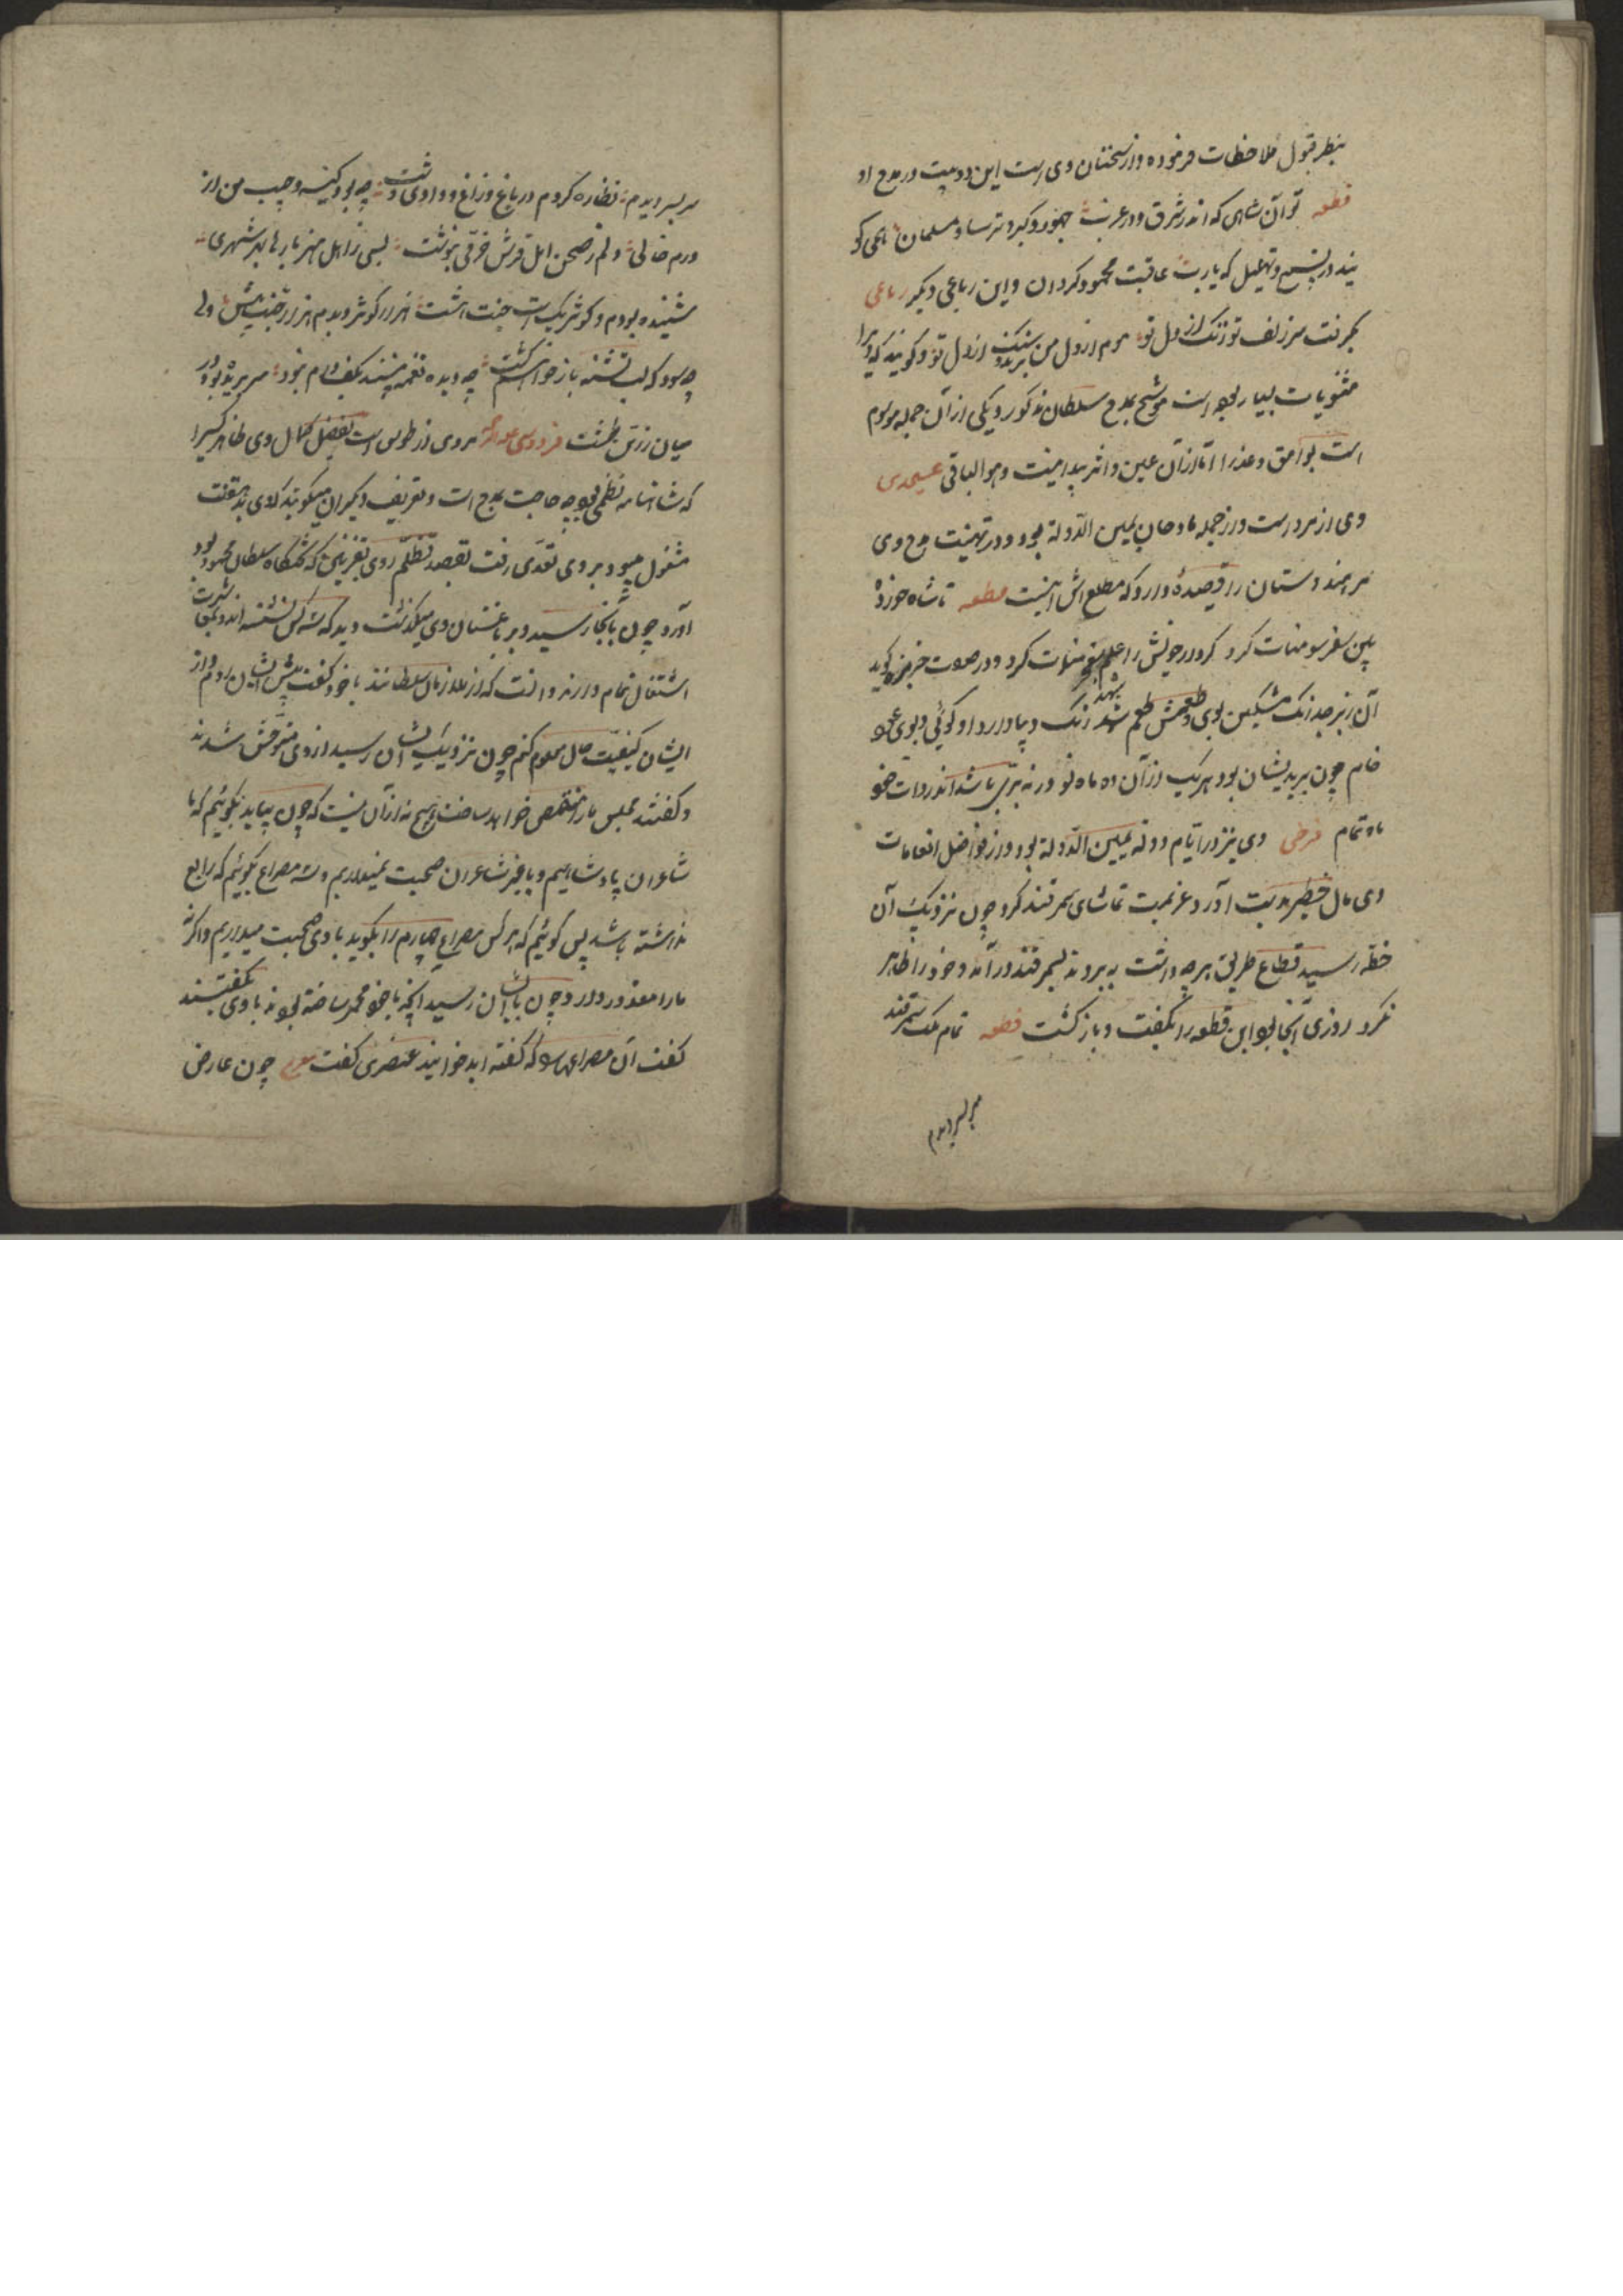 بنظر قبول ملاحظات فرموده و از سخنان وی است این دو بیت در مدح او
قطعه تو آن شاهی که اندر شرق و در غرب جهود و گبر و ترسا و مسلمان همی گو
یند در تسبیح و تهلیل که یا رب عاقبت محمود گردان و این رباعی دیگر رباعی
بگرفت سر زلف تو رنگ از دل تو هم از دل من ببرد سنگ از دل تو و گویند که ویرا
مثنویات بسیار بوده است موشح بمدح سلطان مذکور و یکی از آن جمله موسوم
است بوامق و عذرا اما از آن عین و اثر پیدا نیست و هو الباقی عسجدی
وی از مرو است و از جمله مادحان یمین الدولة بود و در تهنیت فتح وی
مر هندوستان را قصیده دارد که مطلع اش اینست مطلعه تا شاه خورده
بین سفر سومنات کرد کردار خویش را علم معجزات کرد و در صفت خربزه گوید
آن زبرجد رنگ مشکین بوی و طعمش طعم شهد رنگ دیبا دارد او گوئی و بوی عود
خام چون ببریدیشان بود هر یک از آن ده ماه نو ور نه بری باشد اندر ذات خود
ماه تمام فرخی وی نیز در ایام دولة یمین الدولة بود و از فواضل انعامات
وی مال خطیر بدست آورد عزیمت تماشای سمرقند کرد چون نزدیک آن
خطه رسید قطاع طریق هرچه داشت ببردند بسمرقند درآمد و خود را ظاهر
نکرد روزی آنجا بود این قطعه را بگفت و باز گشت قطعه تمام ملک سمرقند
سر بسر دیدم
سر بسر دیدم نظاره کردم در باغ و راغ و وادی و دشت چه بود کیسه و جیب من از
درم خالی دلم ز صحن امل فرش خرمی بنوشت بسی ز اهل هنر بارها بهر شهری
شنیده بودم و کوثر یکیست جنت هشت هزار کوثر دیدم هزار جنت بیش ولی
چه سود که لب تشنه باز خواهم گشت چه دیده نعمه بیند بکف درم نبود سر بریده بود در
میان زرین طشت فردوسی علیه الرحمه وی از طوس است فضل و کمال وی ظاهر کسیرا
که شاهنامه نظمی بود چه حاجت بمدح است و تعریف دیگران میگویند که وی بدهقنت
مشغول میبود بر وی تعدی رفت بقصد تظلم روی بغزنین که تختگاه سلطان محمود بود
آورد چون بآنجا رسید و بر باغستان وی میگذشت دید که سه کس نشسته اند و بمعاشرت
اشتغال تمام دارند دانست که از ملازمان سلطانند با خود گفت پیش ایشان روم و از
ایشان کیفیت حال معلوم کنم چون نزدیک ایشان رسید از وی متوحش شدند
و گفتند مجلس ما را منغص خواهد ساخت هیچ به از آن نیست که چون بیاید بگوئیم که ما
شاعران پادشاهیم و با غیر شاعران صحبت نمیداریم و سه مصراع بگوئیم که رابع
نداشته باشد پس گوئیم که هر کس مصراع چهارم را بگوید با وی صحبت میداریم و اگرنه
ما را معذور دارد چون بایشان رسید آنچه با خود مخمر ساخته بودند با وی بگفتند
گفت آن مصراعها را که گفته اید خوانید عنصری گفت مصرع چون عارض